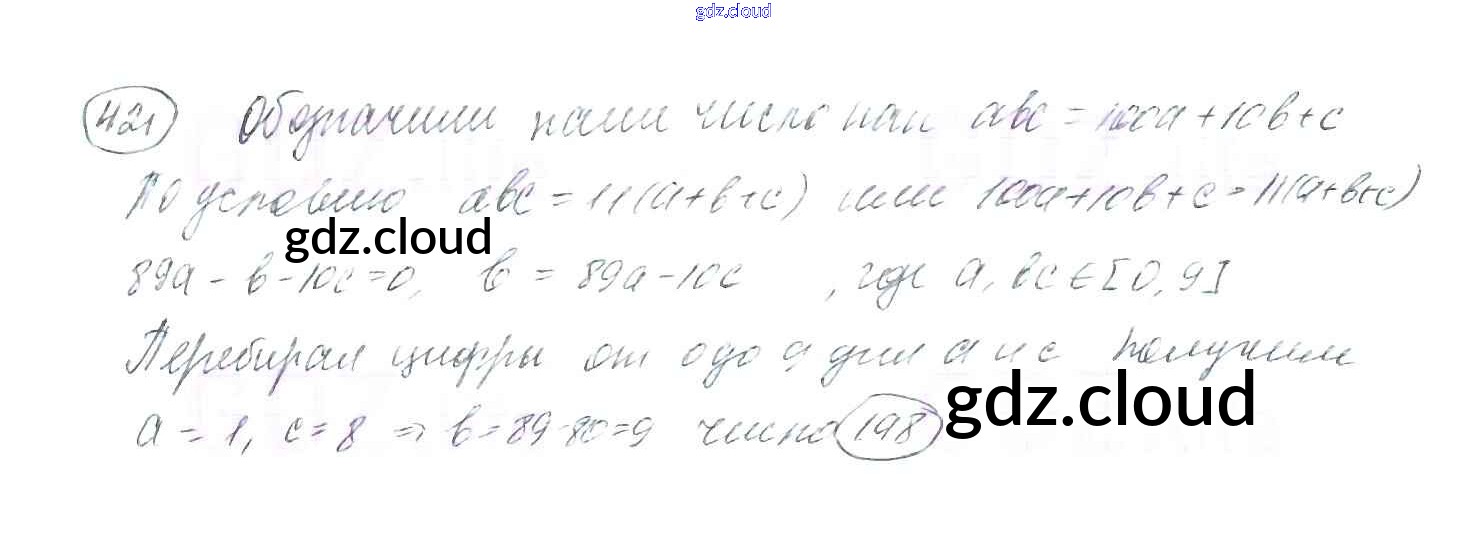 gdz.cloud
421 Обозначим наше число как abc = 100a + 10b + c
По условию abc = 11(a+b+c) или 100a+10b+c = 11(a+b+c)
gdz.cloud
89a - b - 10c = 0, b = 89a - 10c , где a, b c ∈ [0, 9]
Перебирая цифры от 0 до 9 для a и c получим
gdz.cloud
a = 1, c = 8 ⇒ b = 89-80=9 число 198